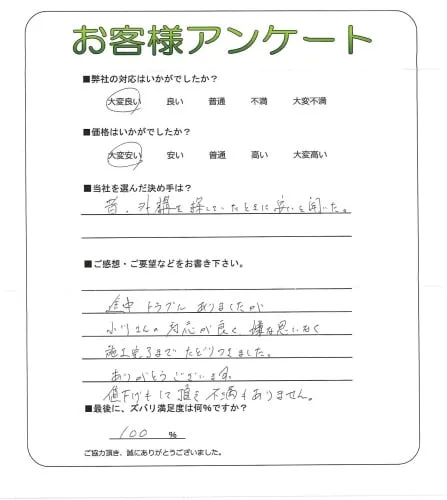 お客様アンケート
■弊社の対応はいかがでしたか？
大変良い 良い 普通 不満 大変不満
■価格はいかがでしたか？
大変安い 安い 普通 高い 大変高い
■当社を選んだ決め手は？
昔、外構を探していたときに安いと聞いた。
■ご感想・ご要望などをお書き下さい。
途中 トラブル ありましたが
小川さんの 対応が良く 嫌な思いなく
施工完了まで たどりつきました。
ありがとうございます。
値下げもして頂き 不満もありません。
■最後に、ズバリ満足度は何%ですか？
100 %
ご協力頂き、誠にありがとうございました。